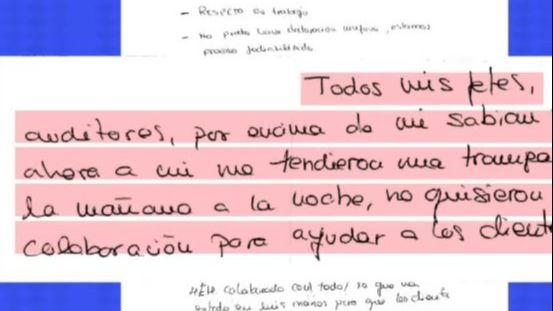 - Respeto al trabajo
- No puedo hacer declaración ninguna, estamos
proceso judicializado
Todos mis jefes,
auditores, por encima de mi sabían
ahora a mi me tendieron una trampa
la mañana a la noche, no quisieron
colaboración para ayudar a los client
HÉH. Colaborado con todo/ lo que va
entrado en mis manos para que los clients